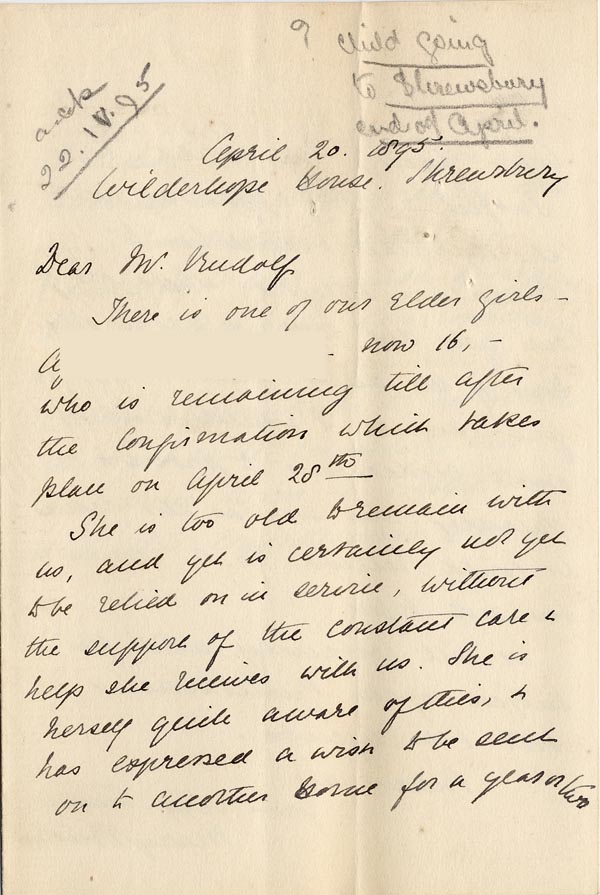 ? child going
to Shrewsbury
end of April.
ack
22.IV.95
April 20. 1895.
Wilderhope House. Shrewsbury
Dear Mr. Rudolf
There is one of our elder girls -
A
now 16, -
who is remaining till after
the Confirmation which takes
place on April 28th
She is too old to remain with
us, and yet is certainly not yet
to be relied on in service, without
the support of the constant care &
help she receives with us. She is
herself quite aware of this, &
has expressed a wish to be sent
on to another Home for a year or two